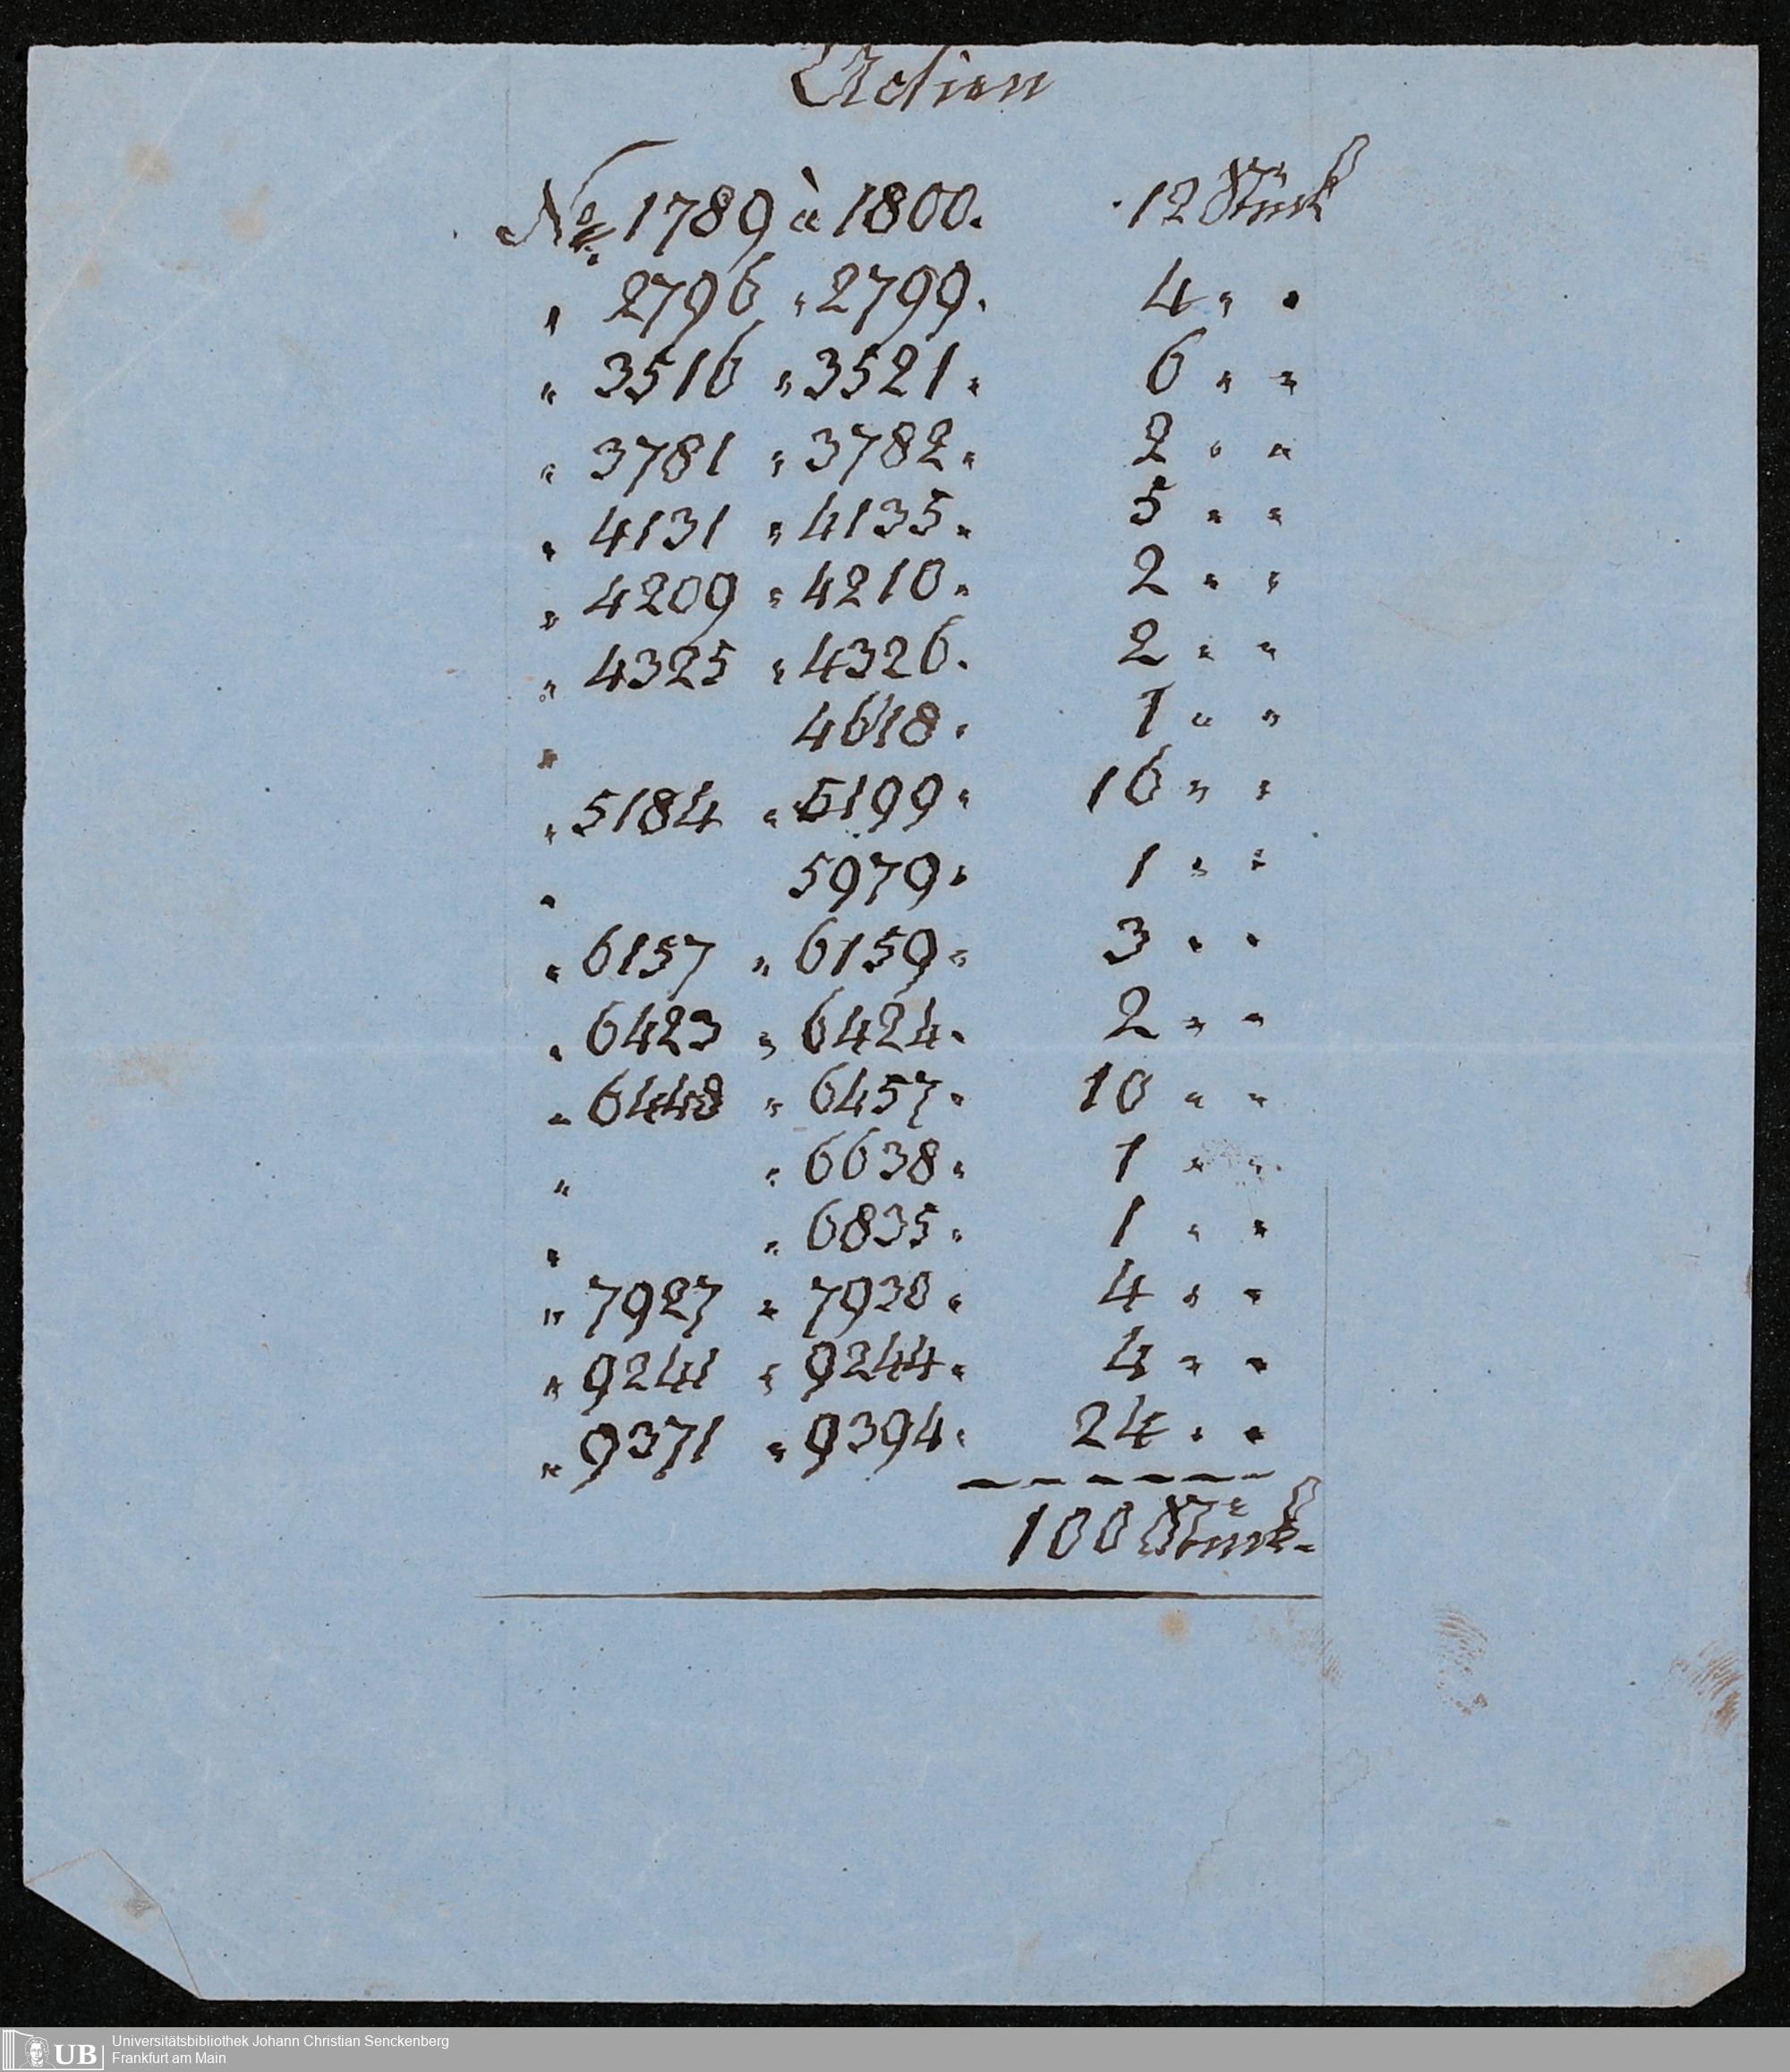 Actien
No. 1789 à 1800. 12 Stück
" 2796 " 2799. 4 " "
" 3516 " 3521. 6 " "
" 3781 " 3782. 2 " "
" 4131 " 4135. 5 " "
" 4209 " 4210. 2 " "
" 4325 " 4326. 2 " "
" 4618. 1 " "
" 5184 " 5199. 16 " "
" 5979. 1 " "
" 6157 " 6159. 3 " "
" 6423 " 6424. 2 " "
" 6448 " 6457. 10 " "
" " 6638. 1 " "
" " 6835. 1 " "
" 7927 " 7930. 4 " "
" 9241 " 9244. 4 " "
" 9371 " 9394. 24 " "
100 Stück.
UB Universitätsbibliothek Johann Christian Senckenberg
Frankfurt am Main